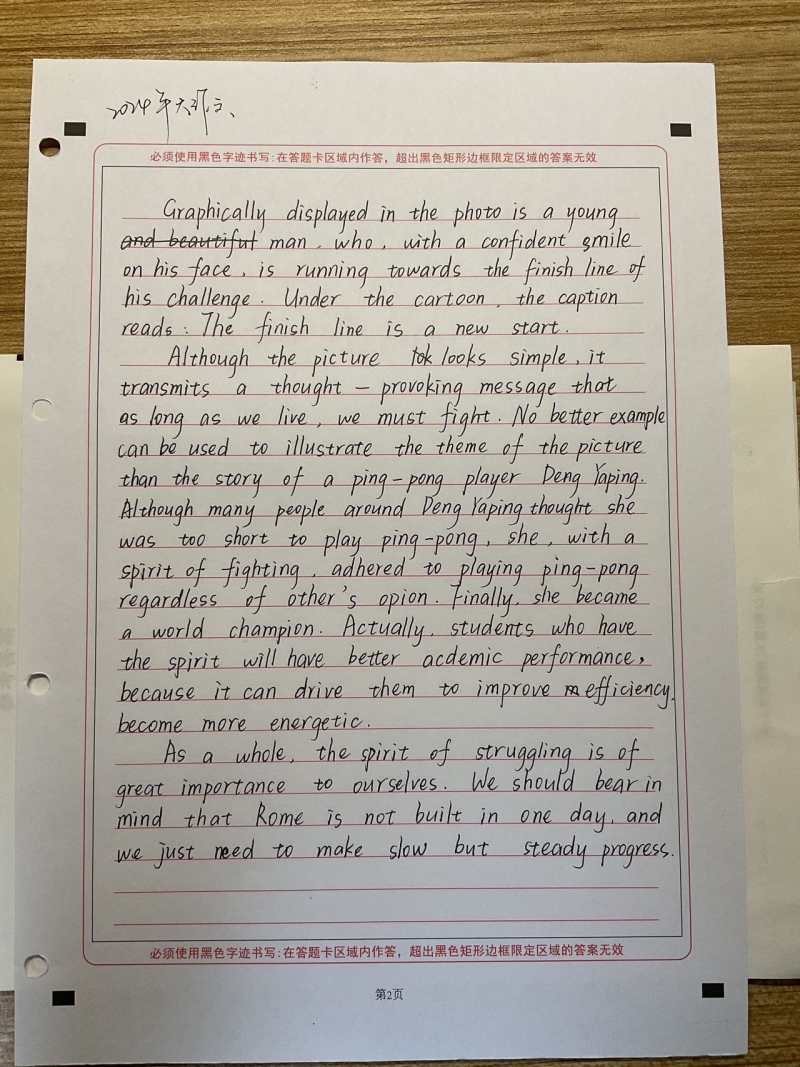 2024年大作文、
必须使用黑色字迹书写:在答题卡区域内作答，超出黑色矩形边框限定区域的答案无效
Graphically displayed in the photo is a young
and beautiful man, who, with a confident smile
on his face, is running towards the finish line of
his challenge. Under the cartoon, the caption
reads: The finish line is a new start.
Although the picture looks simple, it
transmits a thought-provoking message that
as long as we live, we must fight. No better example
can be used to illustrate the theme of the picture
than the story of a ping-pong player Deng Yaping.
Although many people around Deng Yaping thought she
was too short to play ping-pong, she, with a
spirit of fighting, adhered to playing ping-pong
regardless of other's opion. Finally, she became
a world champion. Actually, students who have
the spirit will have better acdemic performance,
because it can drive them to improve efficiency,
become more energetic.
As a whole, the spirit of struggling is of
great importance to ourselves. We should bear in
mind that Rome is not built in one day, and
we just need to make slow but steady progress.
必须使用黑色字迹书写:在答题卡区域内作答，超出黑色矩形边框限定区域的答案无效
第2页